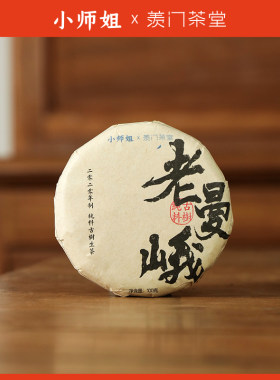 小师姐 x 羡门茶堂
小师姐 x 羡门茶堂
老曼峨
古樹
純料
二零二零年制 純料古樹生茶